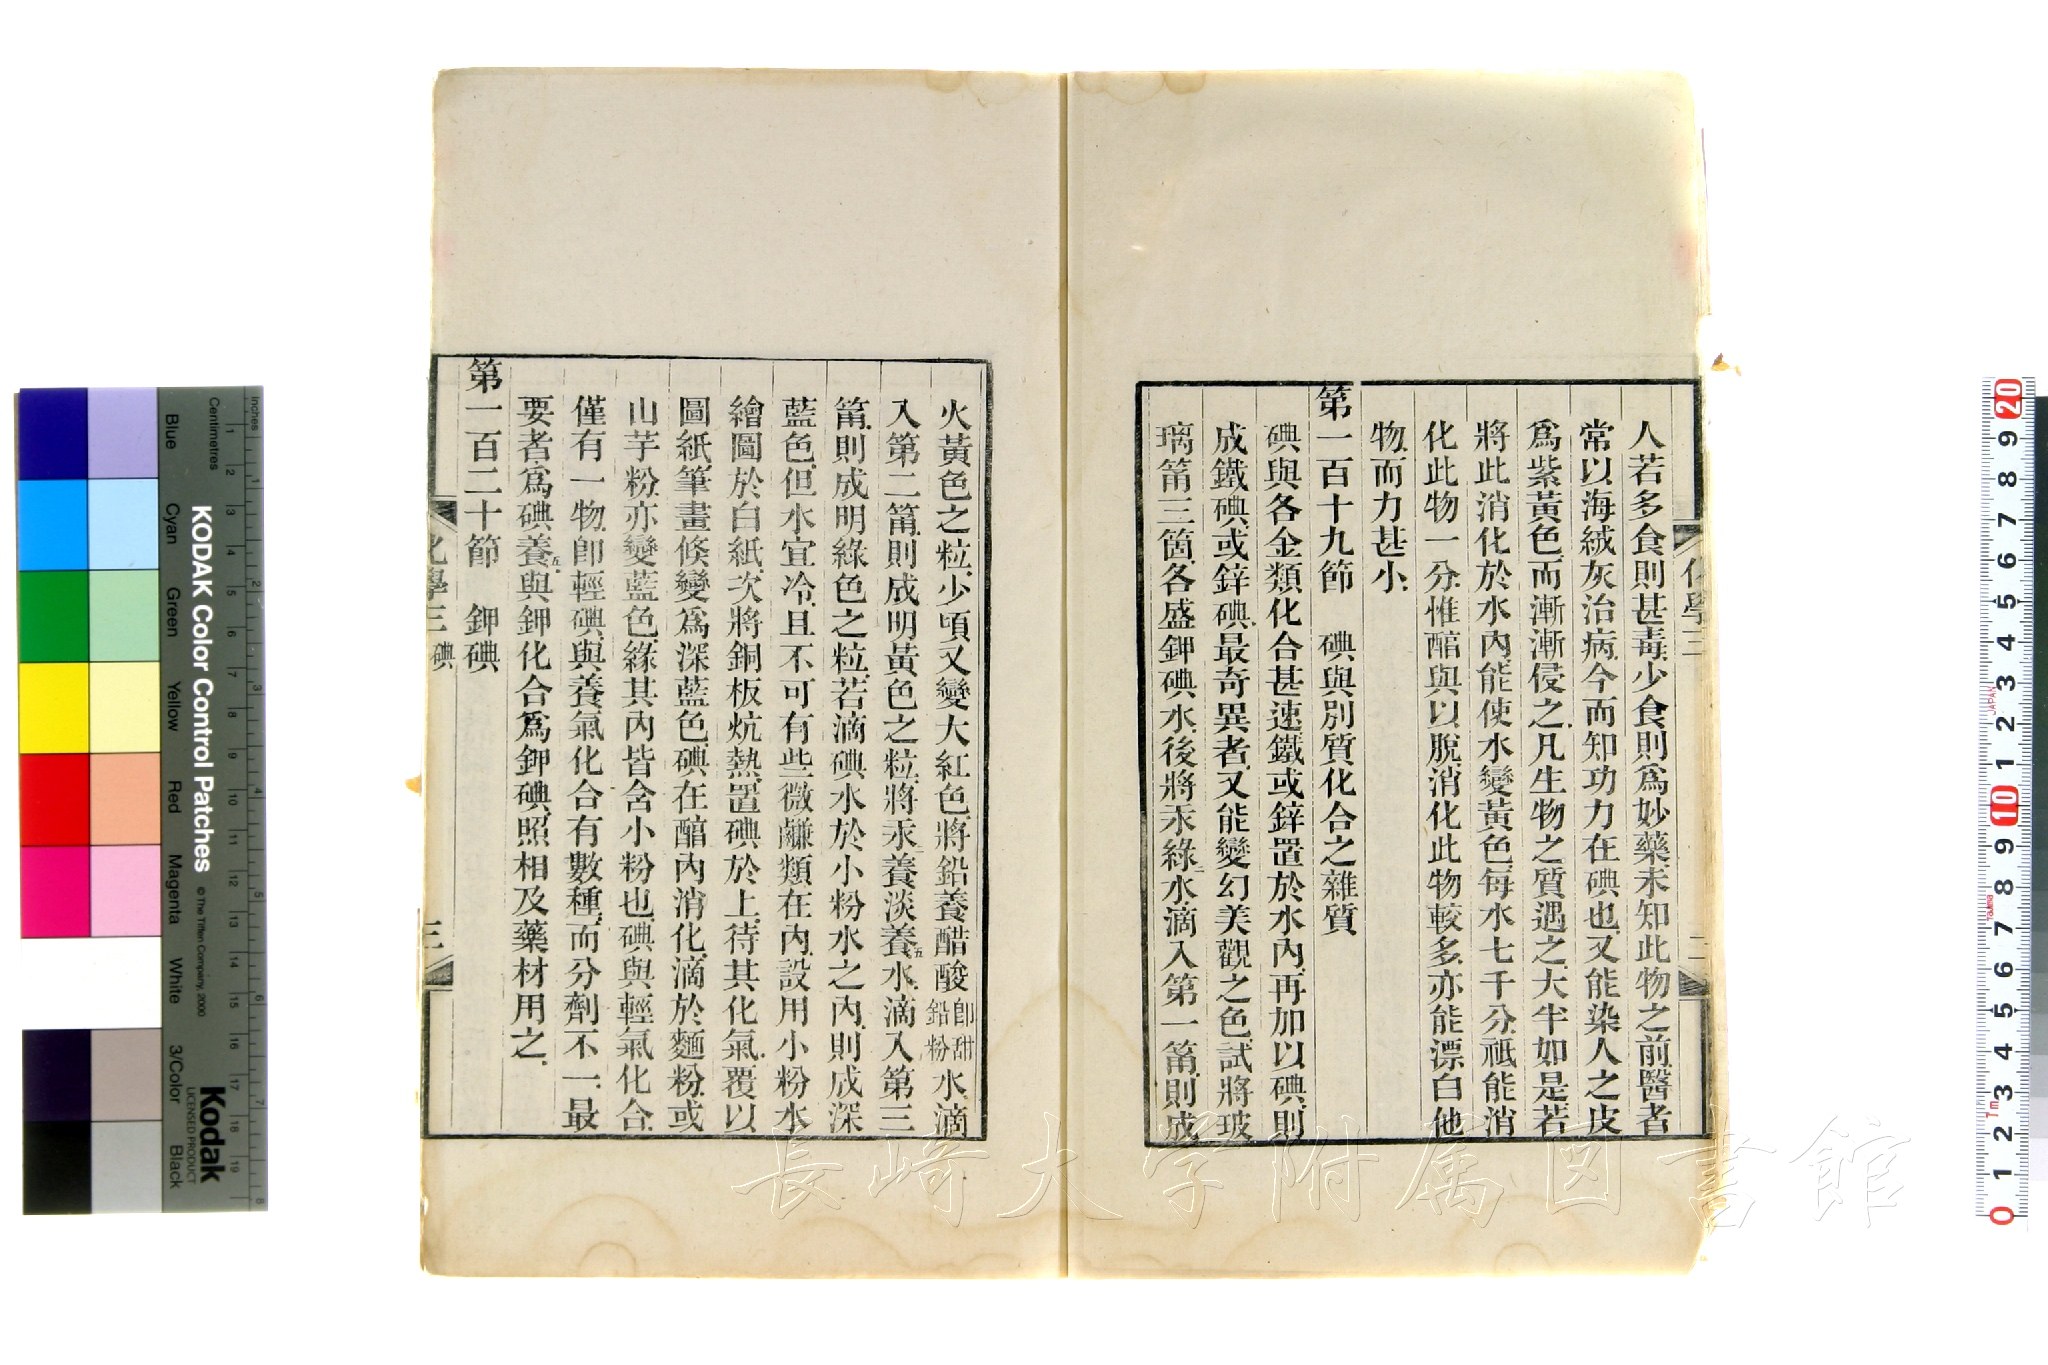 人若多食則甚毒、少食則爲妙藥、未知此物之前、醫者
常以海絨灰治病、今而知功力在碘也、又能染人之皮
爲紫黃色、而漸漸侵之、凡生物之質遇之、大半如是、若
將此消化於水內、能使水變黃色、每水七千分、祗能消
化此物一分、惟䤈與以脫、消化此物較多、亦能漂白他
物、而力甚小、
第一百十九節　碘與別質化合之雜質
碘與各金類化合甚速、鐵或鋅置於水內、再加以碘、則
成鐵碘、或鋅碘、最奇異者、又能變幻美觀之色、試將玻
璃筩三箇、各盛鉀碘水、後將汞綠二水、滴入第一筩、則成
化學三
二
火黃色之粒、少頃又變大紅色、將鉛養醋酸卽甜鉛粉水、滴
入第二筩、則成明黃色之粒、將汞養淡養五水、滴入第三
筩、則成明綠色之粒、若滴碘水於小粉水之內、則成深
藍色、但水宜冷、且不可有些微鹻類在內、設用小粉水
繪圖於白紙、次將銅板炕熱、置碘於上、待其化氣、覆以
圖紙、筆畫倏變爲深藍色、碘在䤈內消化、滴於麵粉、或
山芋粉、亦變藍色、緣其內皆含小粉也、碘與輕氣化合、
僅有一物、卽輕碘、與養氣化合有數種、而分劑不一、最
要者、爲碘養五、與鉀化合爲鉀碘、照相及藥材用之、
第一百二十節　鉀碘
化學三　碘
三
長崎大学附属図書館
KODAK Color Control Patches
© The Tiffen Company, 2000
Kodak
LICENSED PRODUCT
Blue Cyan Green Yellow Red Magenta White 3/Color Black
Centimetres
inches
1 2 3 4 5 6 7 8 9 10 11 12 13 14 15 16 17 18 19
1 2 3 4 5 6 7 8
20 9 8 7 6 5 4 3 2 1 10 9 8 7 6 5 4 3 2 1 0
JAPAN